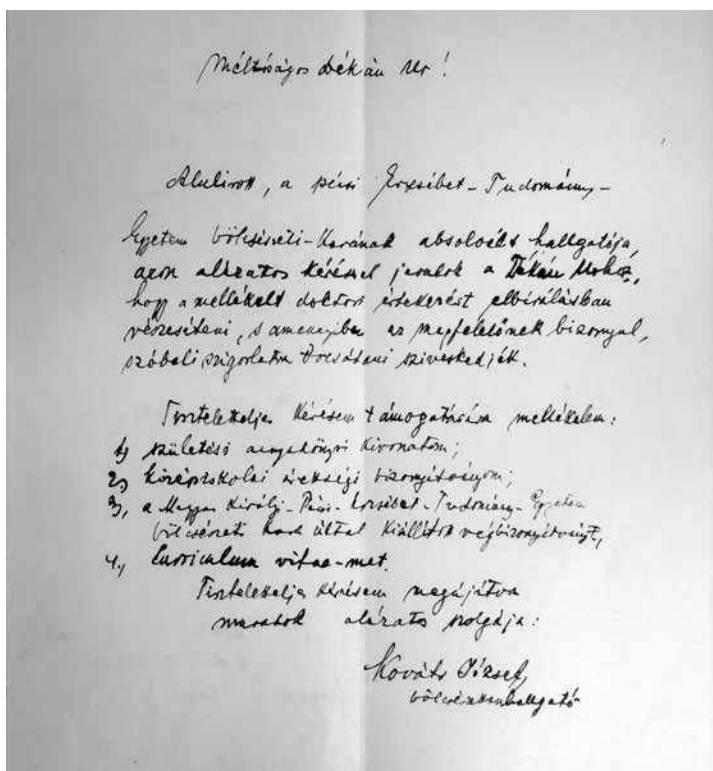 Méltóságos Dékán Úr!
Alulirott, a pécsi Erzsébet-Tudomány-
Egyetem bölcsészeti-Karának absolvált hallgatója,
azon alázatos kéréssel járulok a Dékán Úrhoz,
hogy a mellékelt doktori értekezést elbirálásban
részesíteni, s amennyiben az megfelelőnek bizonyul,
szóbeli szigorlatra bocsátani sziveskedjék.
Tiszteletteljes kérésem támogatására mellékelem:
1) születési anyakönyvi kivonatom;
2) középiskolai érettségi bizonyítványom;
3, a Magyar Királyi-Pécsi-Erzsébet-Tudomány-Egyetem
bölcsészeti kara által kiállított végbizonyítványt,
4., Curriculum vitae-met.
Tiszteletteljes kérésem megújítva
maradok alázatos szolgája:
Kováts József,
bölcsészettanhallgató